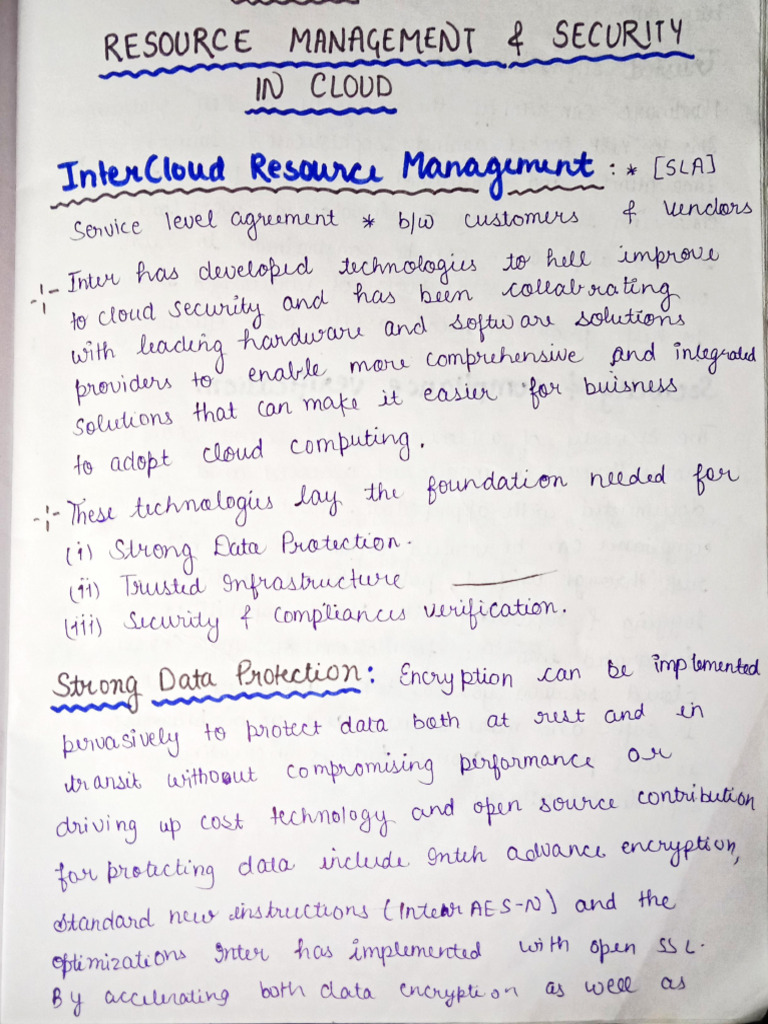 RESOURCE MANAGEMENT & SECURITY
IN CLOUD
InterCloud Resource Management : * [SLA]
Service level agreement * b/w customers & vendors
Inter has developed technologies to hell improve
to cloud security and has been collabrating
with leading hardware and software solutions
providers to enable more comprehensive and integrated
solutions that can make it easier for buisness
to adopt cloud computing.
These technologies lay the foundation needed for
(i) Strong Data Protection.
(ii) Trusted Infrastructure
(iii) Security & compliances verification.
Strong Data Protection: Encryption can be implemented
pervasively to protect data both at rest and in
transit without compromising performance or
driving up cost technology and open source contribution
for protecting data include Inteh advance encryption,
standard new instructions (Inter AES-N) and the
optimizations Inter has implemented with open SSL.
By accelerating both data encryption as well as